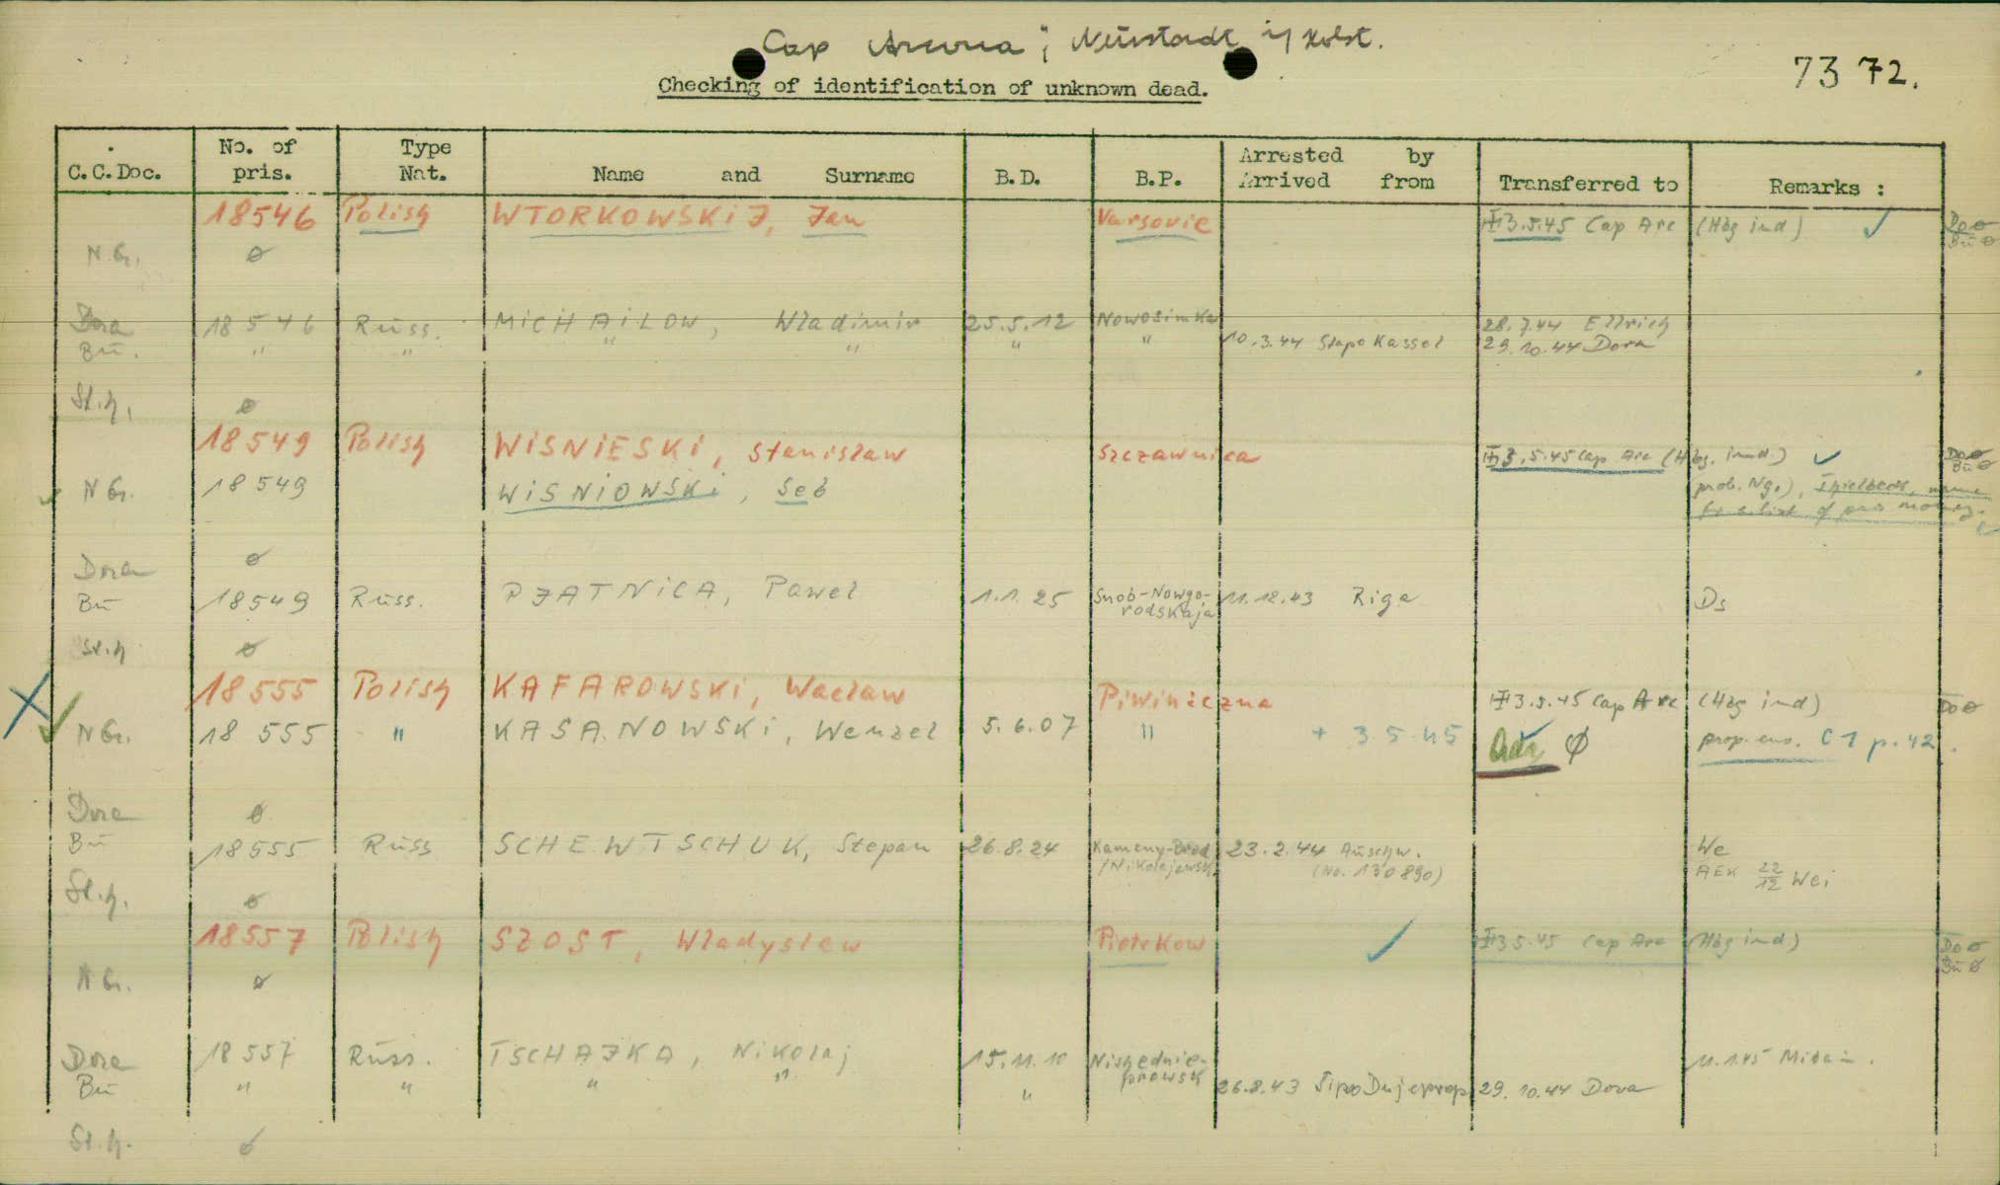 Cap Arcona; Neustadt i/ Holst.
Checking of identification of unknown dead.
73 72.
C.C.Doc. No. of pris. Type Nat. Name and Surname B.D. B.P. Arrested by Arrived from Transferred to Remarks :
18546 Polish WTORKOWSKIJ, Jan Varsovie 3.5.45 Cap Arc (Hbg ind) ✓ Do ø
N G. ø Bu ø
Dora 18546 Russ. MICHAILOW, Wladimir 25.5.12 Nowosimka 28.7.44 Ellrich
Bu. " " " " " " 10.3.44 Stapo Kassel 29.10.44 Dora
St.h. ø
18549 Polish WISNIESKI, Stanislaw Szczawnica 3.5.45 Cap Arc (Hbg. ind.) ✓ Do ø
Bu ø
N G. 18549 WISNIOWSKI, Seb prob. Ng.),
Dora ø
Bu 18549 Russ. PJATNICA, Pawel 1.1.25 Snob-Nowgorodskaja 11.12.43 Riga Ds
St.h ø
18555 Polish KAFAROWSKI, Waclaw Piwiniczna 3.5.45 Cap Arc (Hbg ind) Do ø
N G. 18555 " KASANOWSKI, Wenzel 5.6.07 " + 3.5.45 Ø C1 p.42.
Dora ø
Bu 18555 Russ SCHEWTSCHUK, Stepan 26.8.24 Kameny-Brod 23.2.44 Auschw. We
/Nikolajewsk (No. 130890) AEK 22/12 Wei
St.h. ø
18557 Polish SZOST, Wladyslaw Piotrkow ✓ 3.5.45 Cap Arc (Hbg ind) Do ø
N G. ø Bu ø
Dora 18557 Russ. TSCHAJKA, Nikolaj 15.11.10 11.1.45
Bu " " " " " 26.8.43 Sipo Dnjeprop 29.10.44 Dora
St.h. ø